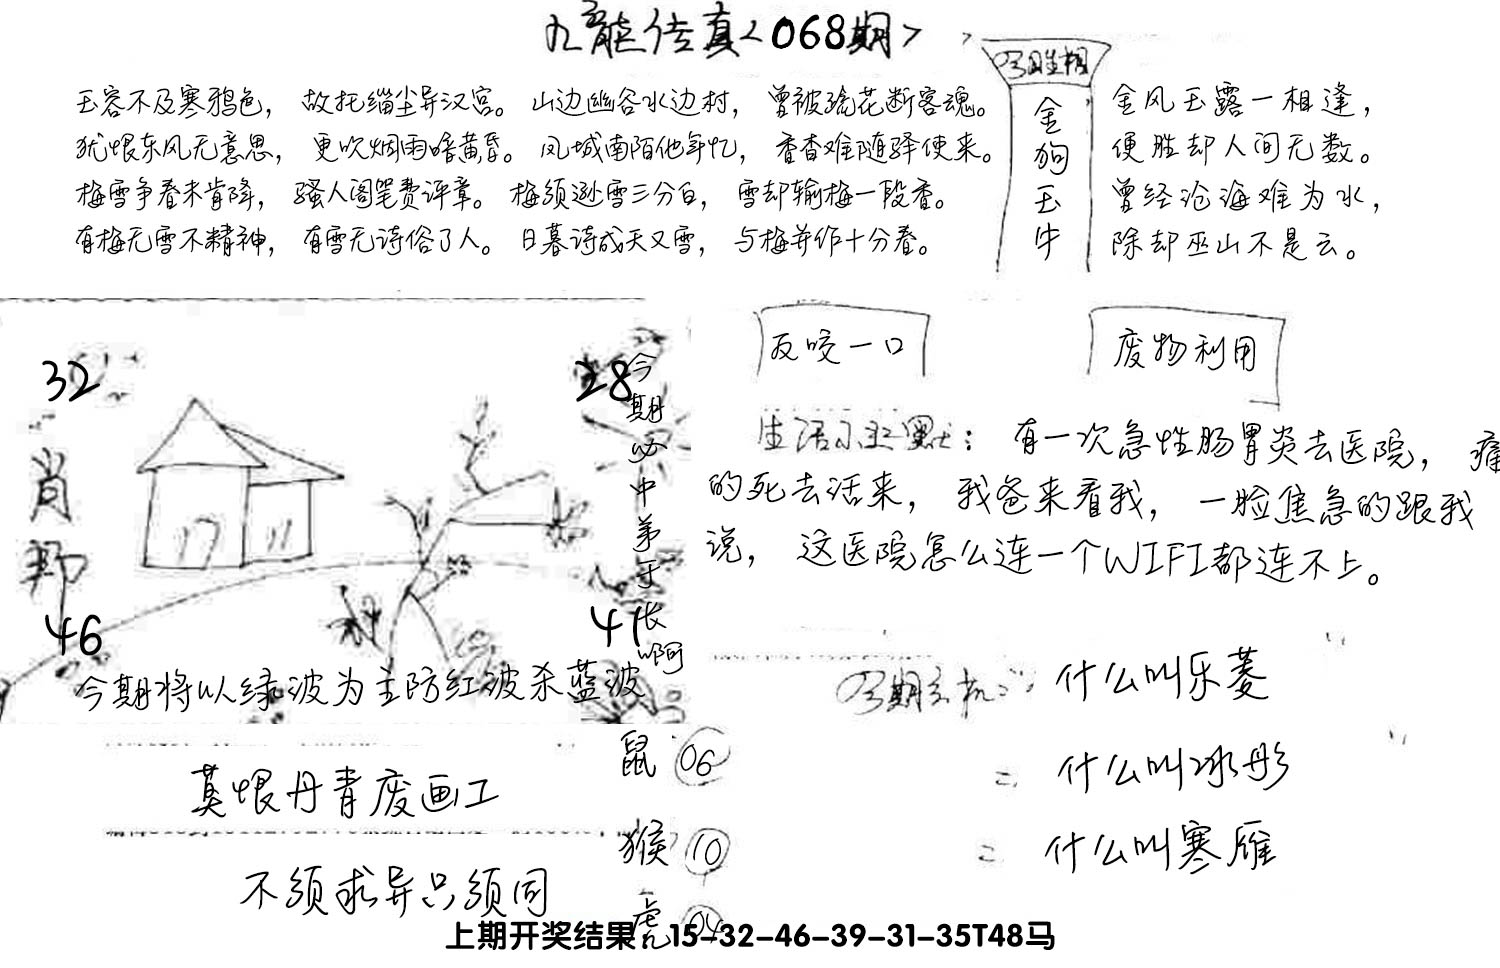 九龍传真<068期>
玉容不及寒鸦色，故托缁尘异汉宫。山边幽谷水边村，曾被疏花断客魂。
犹恨东风无意思，更吹烟雨暗黄昏。凤城南陌他年忆，香杳难随驿使来。
梅雪争春未肯降，骚人阁笔费评章。梅须逊雪三分白，雪却输梅一段香。
有梅无雪不精神，有雪无诗俗了人。日暮诗成天又雪，与梅并作十分春。
金狗玉牛
金风玉露一相逢，
便胜却人间无数。
曾经沧海难为水，
除却巫山不是云。
32
28
肖
46
41
今期必中第于长啊
今期将以绿波为主防红波杀蓝波
反咬一口
废物利用
有一次急性肠胃炎去医院，痛
的死去活来，我爸来看我，一脸焦急的跟我
说，这医院怎么连一个WIFI都连不上。
什么叫乐菱
什么叫冰彤
什么叫寒雁
莫恨丹青废画工
不须求异只须同
鼠 06
猴 10
虎 04
上期开奖结果：15-32-46-39-31-35T48马